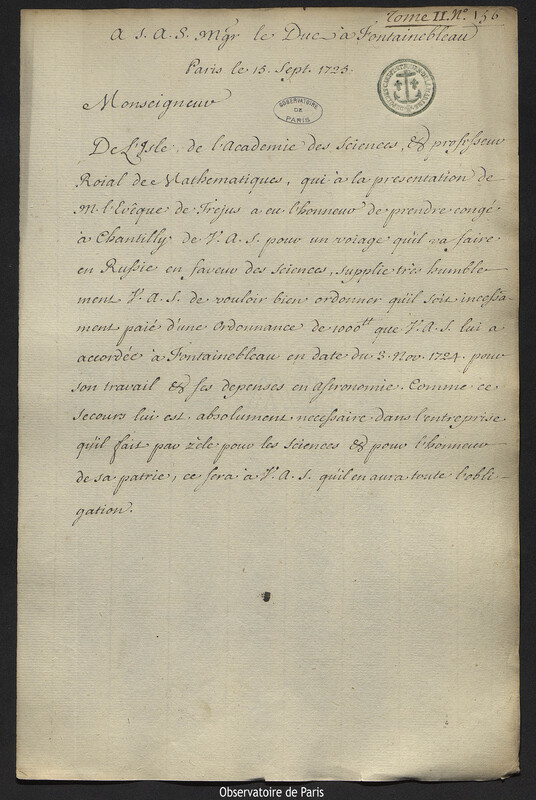 Tome II. N.º 156
A S. A. S. Mgr le Duc à Fontainebleau
Paris le 15. Sept. 1725.
OBSERVATOIRE
DE
PARIS
Monseigneur
De L'Isle, de l'Academie des Sciences, & professeur
Roial de Mathematiques, qui à la presentation de
M. l'Evêque de Frejus a eu l'honneur de prendre congé
à Chantilly de V. A. S. pour un voiage qu'il va faire
en Russie en faveur des sciences, supplie très humble-
ment V. A. S. de vouloir bien ordonner qu'il soit incessa-
ment paié d'une Ordonnance de 1000tt que V. A. S. lui a
accordée à Fontainebleau en date du 3. Nov. 1724. pour
son travail & ses depenses en Astronomie. Comme ce
secours lui est absolument necessaire dans l'entreprise
qu'il fait par zèle pour les sciences & pour l'honneur
de sa patrie, ce sera à V. A. S. qu'il en aura toute l'obli-
gation.
Observatoire de Paris